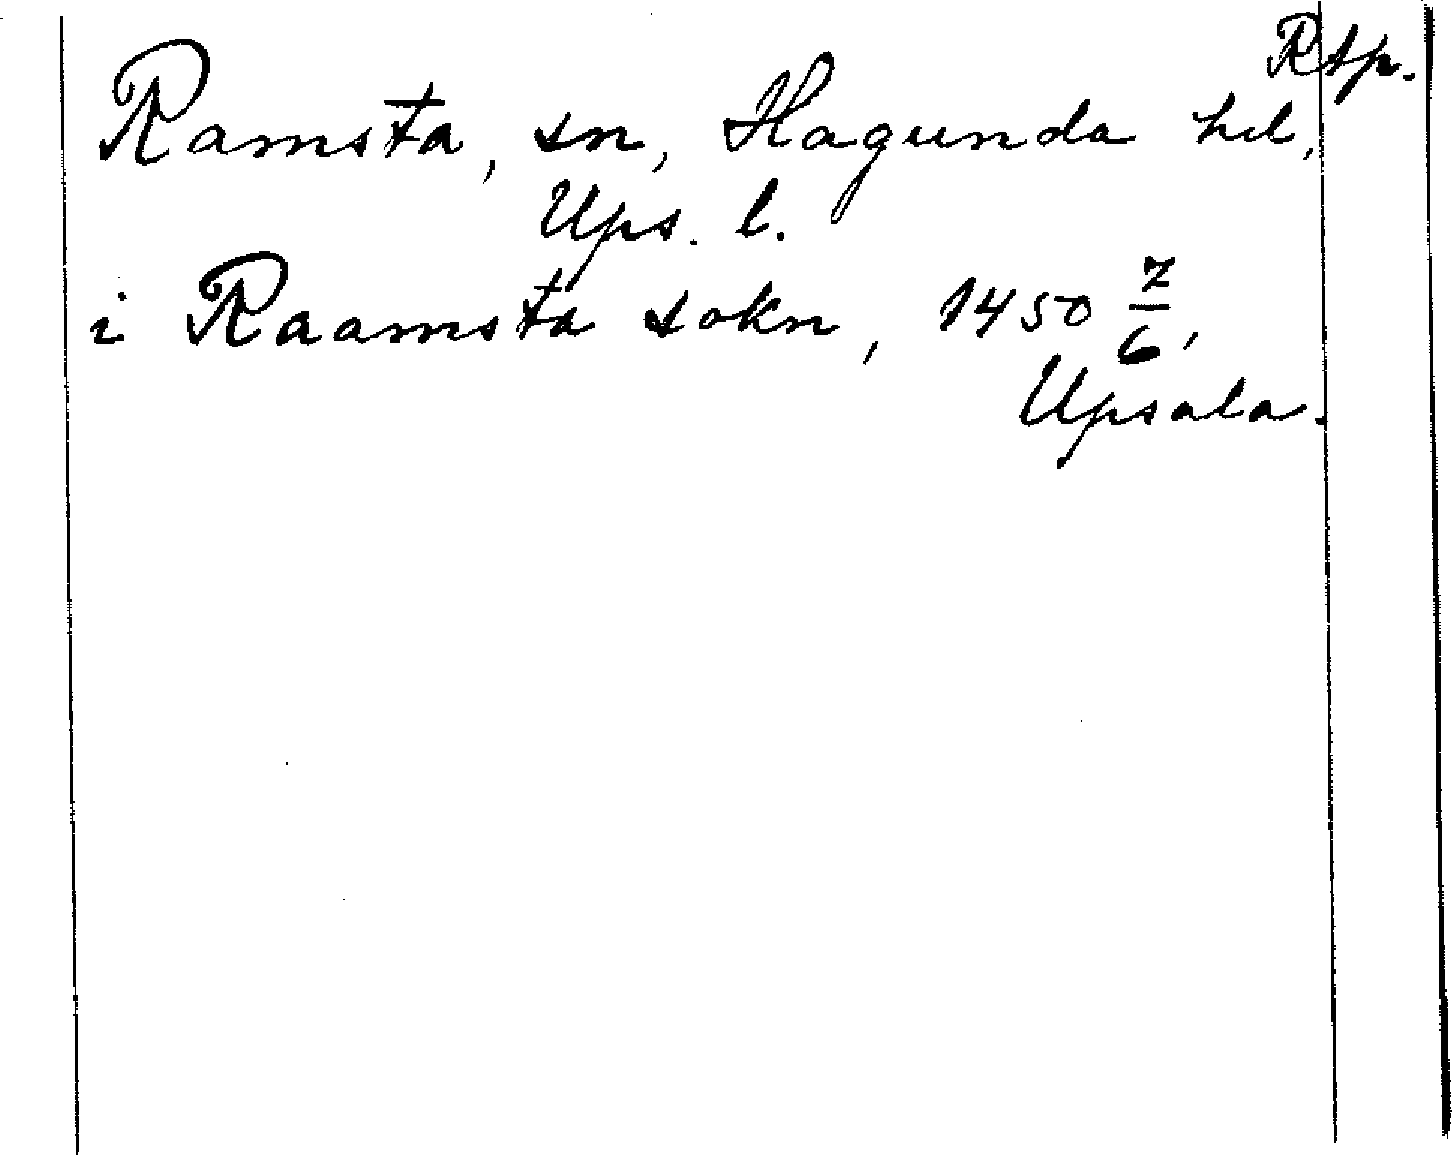 Rtp.
Ramsta, sn, Hagunda hd,
Ups. l.
i Raamsta sokn, 1450 7/6,
Upsala.